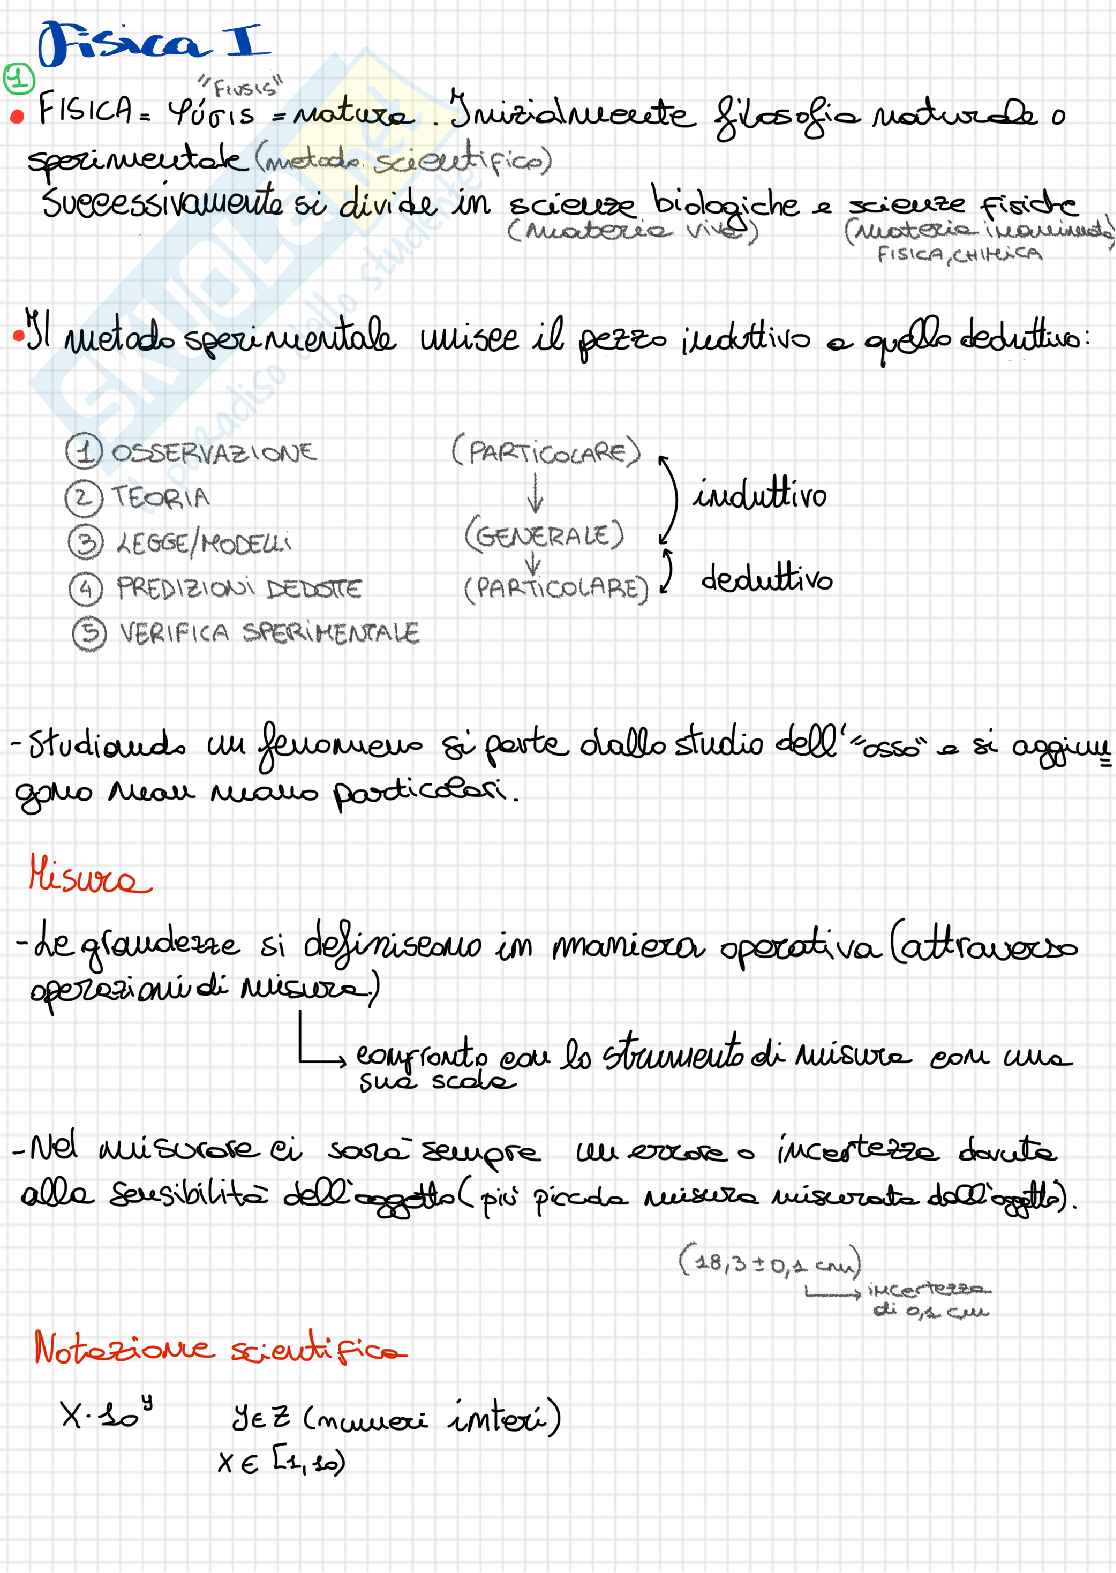 Fisica I
1
"Fiusis"
• FISICA = φύσις = natura. Inizialmente filosofia naturale o
sperimentale (metodo scientifico)
Successivamente si divide in scienze biologiche e scienze fisiche
(materia viva) (materia inanimata)
FISICA, CHIMICA
• Il metodo sperimentale unisce il pezzo induttivo a quello deduttivo:
1 OSSERVAZIONE (PARTICOLARE)
2 TEORIA ↓ induttivo
3 LEGGE/MODELLI (GENERALE)
↓ deduttivo
4 PREDIZIONI DEDOTTE (PARTICOLARE)
5 VERIFICA SPERIMENTALE
- Studiando un fenomeno si parte dallo studio dell'"osso" e si aggiun
gono man mano particolari.
Misura
- Le grandezze si definiscono in maniera operativa (attraverso
operazioni di misura)
→ confronto con lo strumento di misura con una
sua scala
- Nel misurare ci sarà sempre un errore o incertezza dovuta
alla sensibilità dell'oggetto (più piccola misura misurata dall'oggetto).
(18,3 ± 0,1 cm)
→ incertezza
di 0,1 cm
Notazione scientifica
X · 10^y y ∈ Z (numeri interi)
X ∈ [1, 10)
SKUOLA.net
il paradiso dello studente